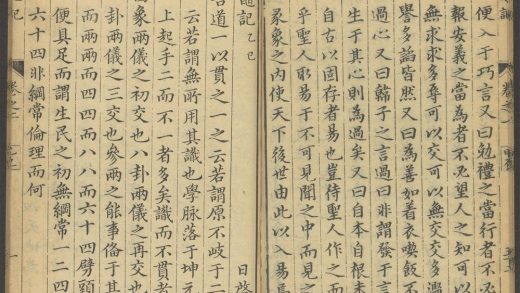 便入于巧言又曰勉禮之當行者不必
報安義之當為者不必望人之知可以
無求求多辱可以交可以無交交多濫
譽多諂皆然又曰為善如着衣喫飯不
過心又曰韓子之言過曰非謂發于言
生于其心則為過矣又曰自本自根未
自古以固存者易也豈待聖人作之而
乎聖人取易于不可見聞之中而見之
彖象之内使天下後世由此以入易焉
日啓
追記乙巳
吾道一以貫之一之云若謂原不歧于二
云若謂無所用其識也學脉落于坤元
上起手二而不一者多矣識而不貫者
象兩儀之初交也八卦兩儀之再交也
卦兩儀之三交也參兩之能事偹于其
而兩兩而四四而八八而六十四劈頭
便具足而謂生民之初無綱常一二四
六十四非綱常倫理而何